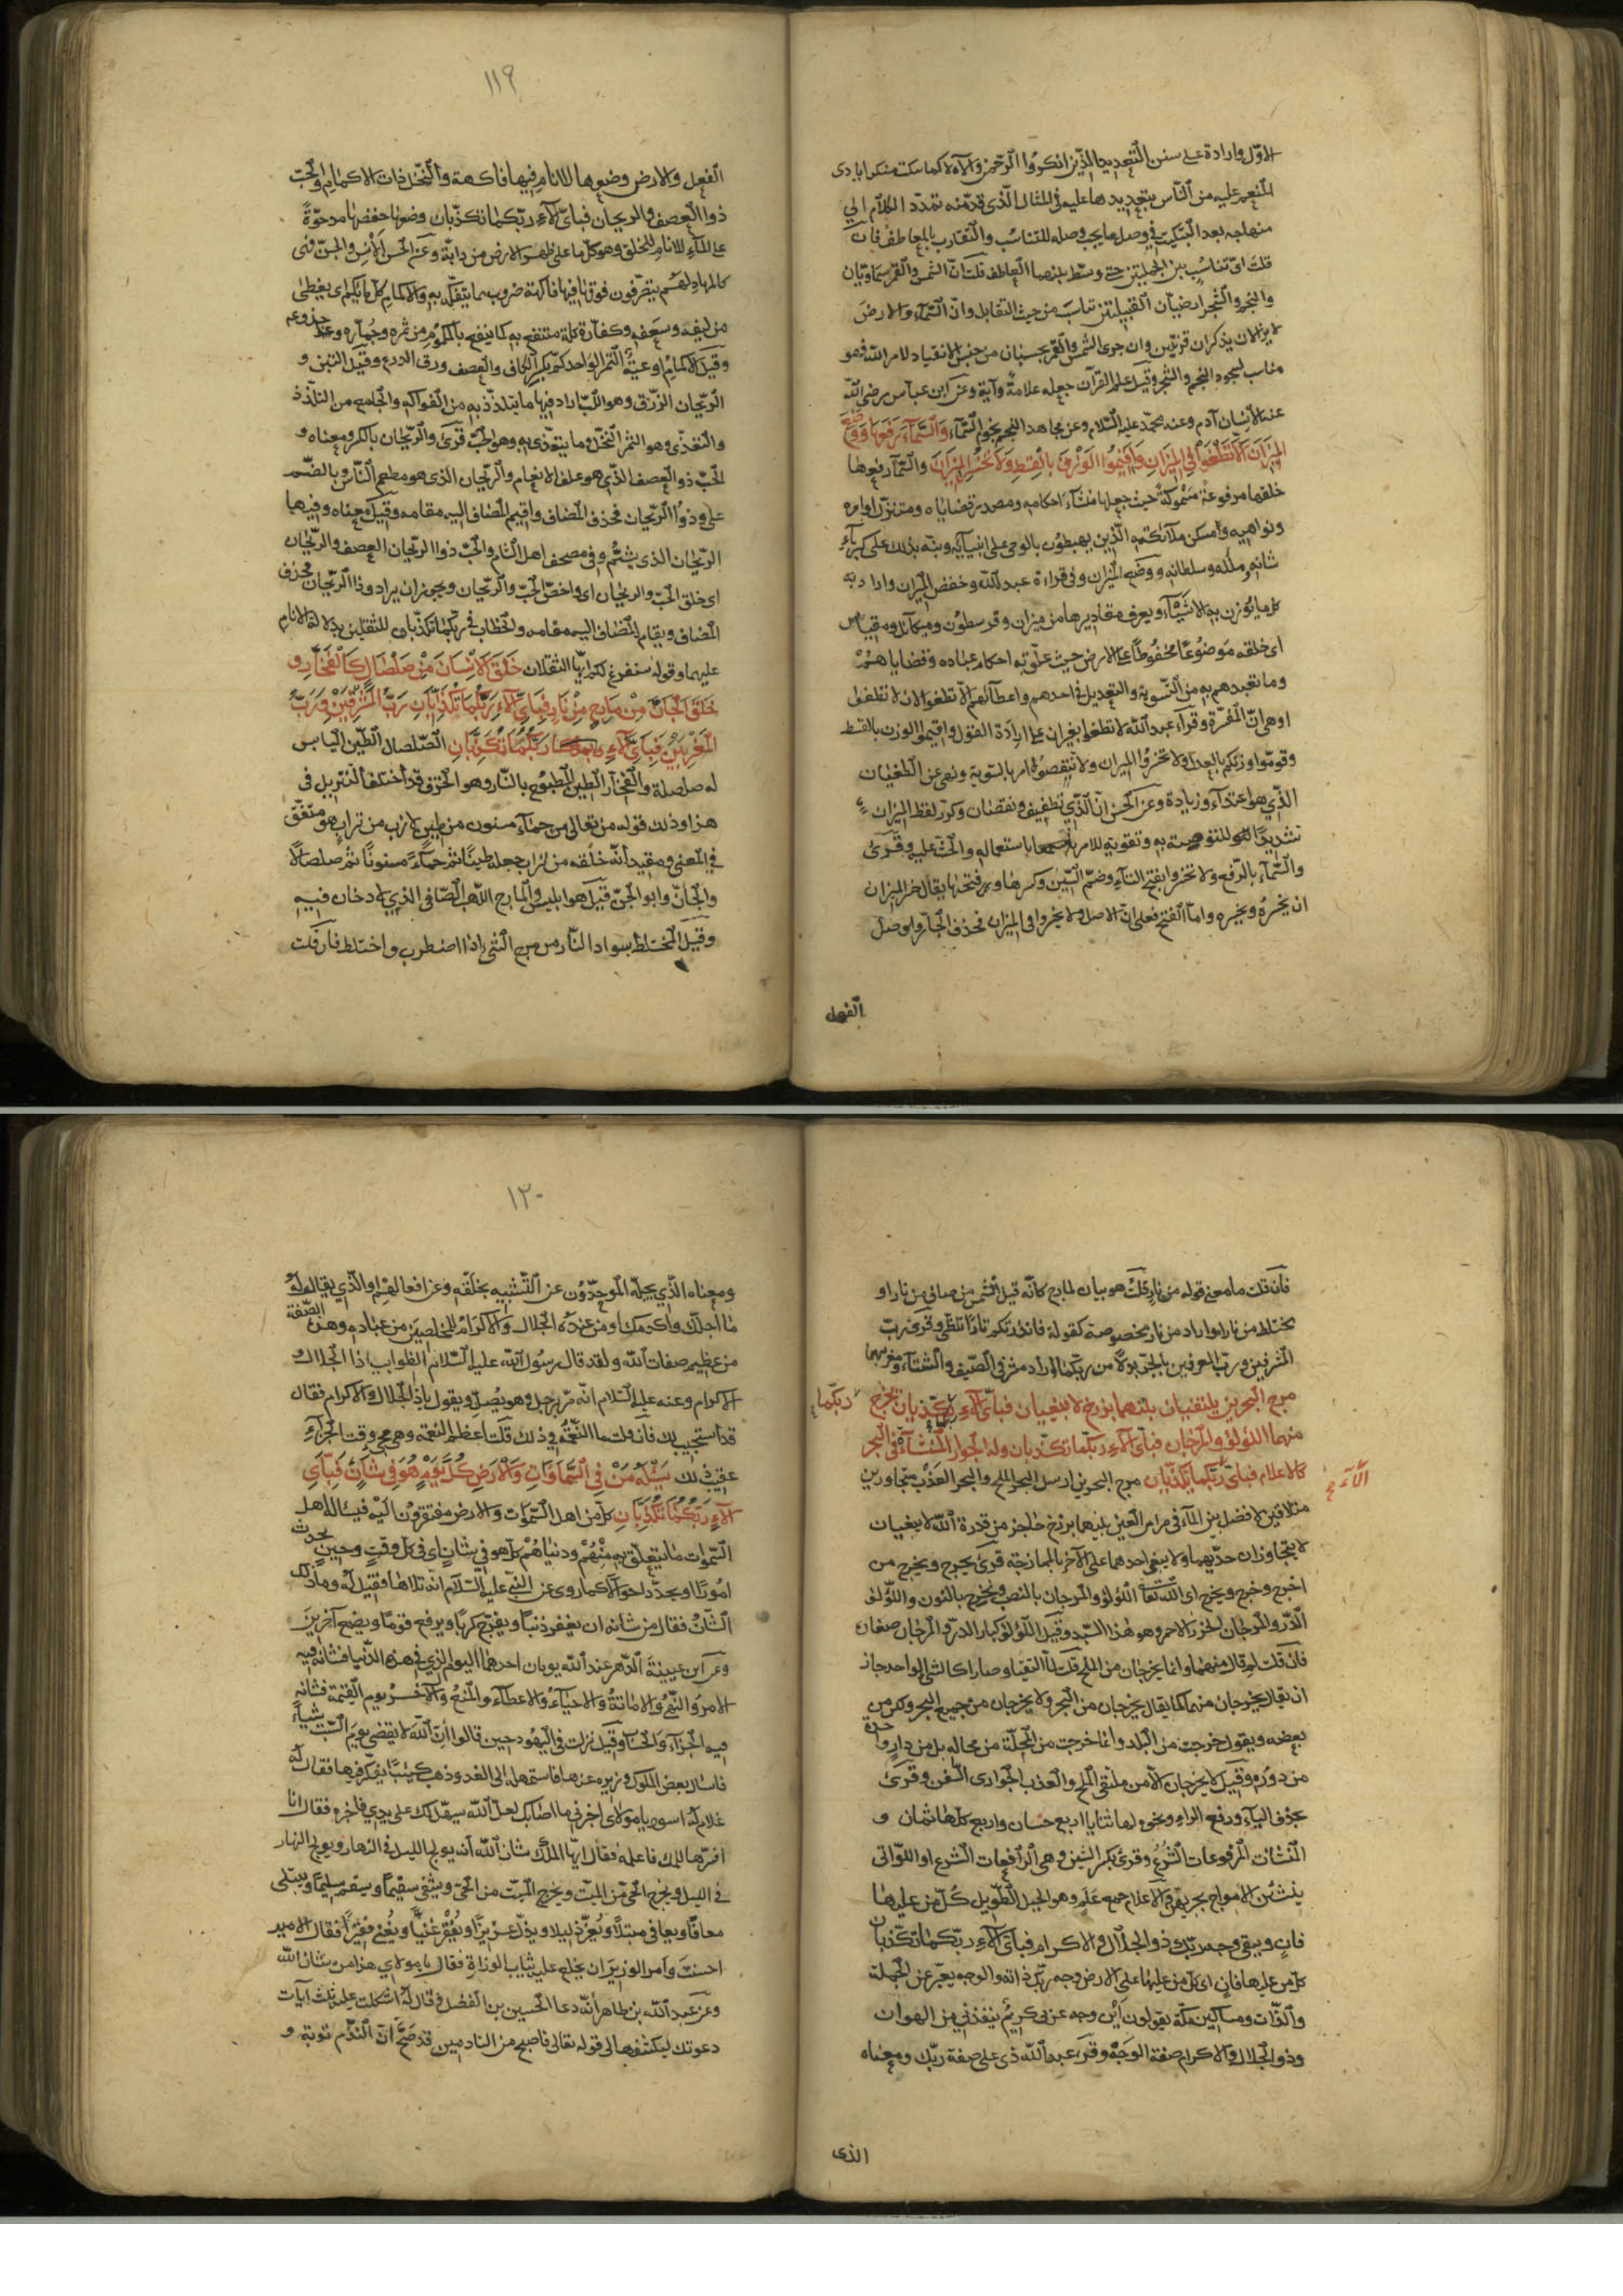 الاول واردة على سنن التعديد الذين انكروا الرحمن وآلاءه كما يبكت منكر ايادى
المنعم عليه من الناس بتعديدها عليه فى المثال الذى قدمته ثم رد الكلام الى
منهاجه بعد التبكيت فى وصل ما يجب وصله للتناسب والتقارب بالعاطف فان
قلت اى تناسب بين الجملتين حتى وسط بينهما العاطف قلت ان الشمس والقمر سماويان
والنجم والشجر ارضيان فبين القبيلتين تناسب من حيث التقابل وان السماء والارض
لا يزالان يذكران قرينين وان جرى الشمس والقمر بحسبان من جنس الانقياد لامر الله فهو
مناسب لسجود النجم والشجر وقيل علم القرآن جعله علامة وآية وعن ابن عباس رضى الله
عنه الانسان آدم وعنه محمد عليه السلام وعن مجاهد النجم نجوم السماء والسماء رفعها ووضع
الميزان الا تطغوا فى الميزان واقيموا الوزن بالقسط ولا تخسروا الميزان والسماء رفعها
خلقها مرفوعة مسموكة حيث جعلها منشأ احكامه ومصدر قضاياه ومتنزل اوامره
ونواهيه ومسكن ملائكته الذين يهبطون بالوحى على انبيائه ونبه بذلك على كبرياء
شانه وملكه وسلطانه ووضع الميزان وفى قراءة عبد الله وخفض الميزان واراد به
كل ما يوزن به الاشياء ويعرف مقاديرها من ميزان وقرسطون ومكيال ومقياس
اى خلقه موضوعا مخفوضا على الارض حيث علق به احكام عباده وقضاياهم
وما تعبدهم به من التسوية والتعديل فى اخذهم واعطائهم الا تطغوا لان لا تطغوا
او هى ان المفسرة وقرأ عبد الله لا تطغوا بغير ان على ارادة القول واقيموا الوزن بالقسط
وقوموا وزنكم بالعدل ولا تخسروا الميزان ولا تنقصوه امر بالتسوية ونهى عن الطغيان
الذى هو اعتداء وزيادة وعن الخسران الذى تطفيف ونقصان وكرر لفظ الميزان
تشديدا للتوصية به وتقوية للامر باستعماله والحث عليه وقرئ
والسماء بالرفع ولا تخسروا بفتح التاء وضم السين وكسرها وفتحها يقال خسر الميزان
ان يخسره ويخسره واما الفتح فعلى ان الاصل ولا تخسروا فى الميزان فحذف الجار واوصل
الفعل
١١٩
الفعل والارض وضعها للانام فيها فاكهة والنخل ذات الاكمام والحب
ذو العصف والريحان فباى آلاء ربكما تكذبان وضعها خفضها مدحوة
على الماء للانام للخلق وهو كل ما على ظهر الارض من دابة وعن الحسن الانس والجن فهى
كالمهاد لهم يتصرفون فوقها فيها فاكهة ضروب مما يتفكه به والاكمام كل ما يكم اى يغطى
من ليفه وسعفه وكفراه وكله منتفع به كما ينفع بالمكموم من ثمره وجماره وجذوعه
وقيل الاكمام اوعية التمر الواحد كم بكسر الكاف والعصف ورق الزرع وقيل التبن و
الريحان الرزق وهو اللب اراد فيها ما يتلذذ به من الفواكه والجامع من التلذذ
والتغذى وهو الثمر النخل وما يتغذى به وهو الحب قرئ والريحان بالكسر ومعناه و
الحب ذو العصف الذى هو علف الانعام والريحان الذى هو مطعم الناس وبالضم
على وذو الريحان فحذف المضاف واقيم المضاف اليه مقامه وقيل معناه وفيها
الريحان الذى يشم وفى مصحف اهل الشام والحب ذوا الريحان العصف والريحان
اى خلق الحب والريحان اى واخص الحب والريحان ويجوز ان يراد وذا الريحان فحذف
المضاف ويقام المضاف اليه مقامه والخطاب فى ربكما تكذبان للثقلين بدلالة الانام
عليهما وقوله سنفرغ لكم ايها الثقلان خلق الانسان من صلصال كالفخار و
خلق الجان من مارج من نار فباى آلاء ربكما تكذبان رب المشرقين ورب
المغربين فباى آلاء ربكما تكذبان الصلصال الطين اليابس
له صلصلة والفخار الطين المطبوخ بالنار وهو الخزف قد اختلف التنزيل فى
هذا وذلك قوله من تعالى من حماء مسنون من طين لازب من تراب هو متفق
فى المعنى ومفيد انه خلقه من تراب جعله طينا ثم حماء مسنونا ثم صلصالا
والجان وابو الجن قيل هو ابليس والمارج اللهب الصافى الذى لا دخان فيه
وقيل المختلط بسواد النار من مرج الشئ اذا اضطرب واختلط فان قلت
فان قلت ما معنى قوله من نار قلت هو بيان لمارج كانه قيل من صافى من نار او
مختلط من نار او اراد من نار مخصوصة كقوله فانذرتكم نارا تلظى وقرئ رب
المشرقين ورب المغربين بالجر بدلا من ربكما اراد مشرقى الصيف والشتاء ومغربيهما
مرج البحرين يلتقيان بينهما برزخ لا يبغيان فباى آلاء ربكما تكذبان يخرج
ربكما
منهما اللؤلؤ والمرجان فباى آلاء ربكما تكذبان وله الجوار المنشآت فى البحر
كالاعلام فباى ربكما تكذبان مرج البحرين ارسل البحر الملح والبحر العذب متجاورين
آلاء
متلاقين لا فصل بين الماء فى مراى العين بينهما برزخ حاجز من قدرة الله لا يبغيان
لا يتجاوزان حديهما ولا يبغى احدهما على الآخر بالممازجة قرئ يخرج ويخرج من
اخرج وخرج ويخرج اى الله تعالى اللؤلؤ والمرجان بالنصب ونخرج بالنون واللؤلؤ
الدر والمرجان الخرز الاحمر وهو هذا البسد وقيل اللؤلؤ كبار الدر والمرجان صغاره
فان قلت لم قال منهما وانما يخرجان من الملح قلت لما التقيا وصارا كالشئ الواحد جاز
ان يقال يخرجان منهما كما يقال يخرجان من البحر ولا يخرجان من جميع البحر ولكن من
بعضه ويقول خرجت من البلد وانما خرجت من المحلة من محاله بل من دار واحدة
من دوره وقيل لا يخرجان الا من ملتقى الملح والعذب الجوارى السفن وقرئ
بحذف الياء ورفع الراء ونحوه لها ثنايا اربع حسان واربع كلها ثمان و
المنشآت المرفوعات الشرع وقرئ بكسر الشين وهى الرافعات الشرع او اللواتى
ينشئن الامواج بجريهن والاعلام جمع علم وهو الجبل الطويل كل من عليها
فان ويبقى وجه ربك ذو الجلال والاكرام فباى آلاء ربكما تكذبان
كل من عليها فان اى كل من عليها على الارض وجه ربك ذاته والوجه يعبر عن الجملة
والذات ومساكين مكة يقولون اين وجه عربى كريم ينقذنى من الهوان
وذو الجلال والاكرام صفة الوجه وقرئ عبد الله ذى على صفة ربك ومعناه
الذى
١٢٠
ومعناه الذى يجله الموحدون عن التشبيه بخلقه وعن افعالهم او الذى يقال له
ما اجلك واكرمك او من عنده الجلال والاكرام للمخلصين من عباده وهذه الصفة
من عظيم صفات الله ولقد قال رسول الله عليه السلام الظوا بيا ذا الجلال و
الاكرام وعنه عليه السلام انه مر برجل وهو يصلى ويقول يا ذا الجلال والاكرام فقال
قد استجيب لك فان قلت ما النعمة فى ذلك قلت اعظم النعمة وهى مجئ وقت الجزاء
عقيب ذلك يسئله من فى السموات والارض كل يوم هو فى شان فباى
آلاء ربكما تكذبان كل من اهل السموات والارض مفتقرون اليه فيسئاله اهل
السموات ما يتعلق بدينهم ودنياهم كل هو فى شان اى فى كل وقت وحين يحدث
امورا ويجدد احوالا كما روى عن النبى عليه السلام انه تلاها فقيل له وما ذلك
الشان فقال من شانه ان يغفر ذنبا ويفرج كربا ويرفع قوما ويضع آخرين
وعن ابن عيينة الدهر عند الله يومان احدهما اليوم الذى فى هذه الدنيا فشانه فيه
الامر والنهى والاماتة والاحياء والاعطاء والمنع والآخر يوم القيمة فشانه
فيه الجزاء والحساب وقيل نزلت فى اليهود حين قالوا ان الله لا يقضى يوم السبت شيأ
فاسال بعض الملوك وزيره عنها فاستمهله الى الغد وذهب كئيبا يفكر فيها فقال له
غلام له اسود يا مولاى اخبرنى ما اصابك لعل الله يسهل لك على يدى فاخبره فقال انا
افسرها للملك فاعلمه فقال ايها الملك شان الله انه يولج الليل فى النهار ويولج النهار
فى الليل ويخرج الحى من الميت ويخرج الميت من الحى ويشفى سقيما ويسقم سليما ويبتلى
معافا ويعافى مبتلا ويعز ذليلا ويذل عزيزا ويفقر غنيا ويغنى فقيرا فقال الامير
احسنت وامر الوزير ان يخلع عليه ثياب الوزارة فقال يا مولاى هذا من شان الله
وعن عبد الله بن طاهر انه دعا الحسين بن الفضل وقال له اشكلت على ثلث آيات
دعوتك لتكشفها لى قوله تعالى فاصبح من النادمين قد صح ان الندم توبة و